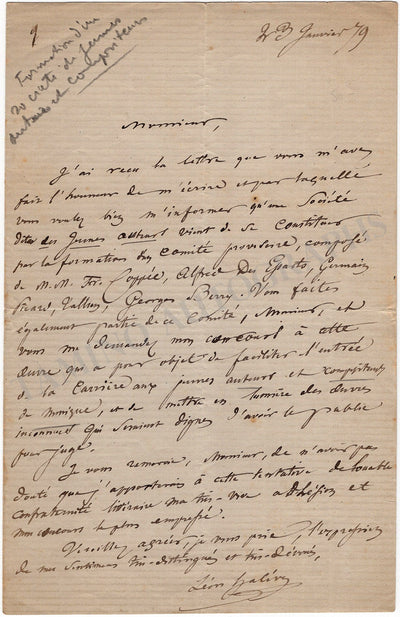 9
23 Janvier 79
Formation d'une
société de jeunes
auteurs et compositeurs
Monsieur,
J'ai reçu la lettre que vous m'avez
fait l'honneur de m'écrire et par laquelle
vous voulez bien m'informer qu'une Société
dite des Jeunes auteurs vient de se constituer
par la formation d'un Comité provisoire, composé
de M.M. Fr. Coppée, Alfred des Essarts, Germain
Picard, Georges Berry. Vous faites
également partie de ce Comité, Monsieur, et
vous me demandez mon concours à cette
œuvre qui a pour objet de faciliter l'entrée
de la Carrière aux jeunes auteurs et compositeurs
de musique, et de mettre en lumière des œuvres
inconnues qui seraient dignes d'avoir le public
pour juge.
Je vous remercie, Monsieur, de n'avoir pas
douté que j'apporterais à cette tentative de louable
confraternité littéraire ma très-vive adhésion et
mon concours le plus empressé.
Veuillez agréer, je vous prie, l'expression
de mes Sentiments très-distingués et très-dévoués,
Léon Halévy